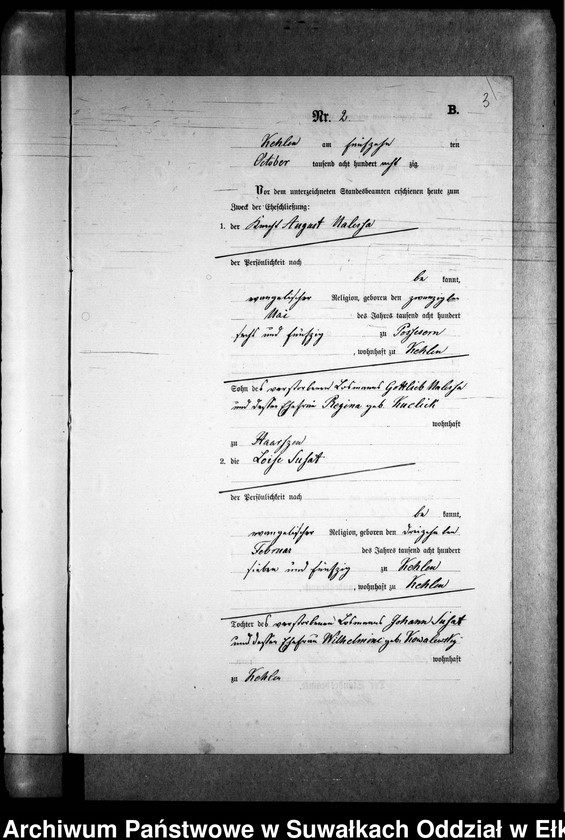 3
Nr. 2 B.
Kehlen am fünfzehn ten
October tausend acht hundert acht zig
Vor dem unterzeichneten Standesbeamten erschienen heute zum
Zweck der Eheschließung:
1. der Knecht August
der Persönlichkeit nach
be kannt,
evangelischer Religion, geboren den zwanzigsten
Mai des Jahrs tausend acht hundert
sechs und fünfzig zu Possessern
, wohnhaft zu Kehlen
Sohn des verstorbenen Losmanns Gottlieb
und dessen Ehefrau Regina geb. Kuclick
wohnhaft
zu Haarszen
2. die Loise Susat
der Persönlichkeit nach
be kannt,
evangelischer Religion, geboren den dreizehnten
Februar des Jahrs tausend acht hundert
sieben und fünfzig zu Kehlen
, wohnhaft zu Kehlen
Tochter des verstorbenen Losmanns Johann Susat
und dessen Ehefrau Wilhelmine geb. Kowalewsky
wohnhaft
zu Kehlen
Archiwum Państwowe w Suwałkach Oddział w Ełk